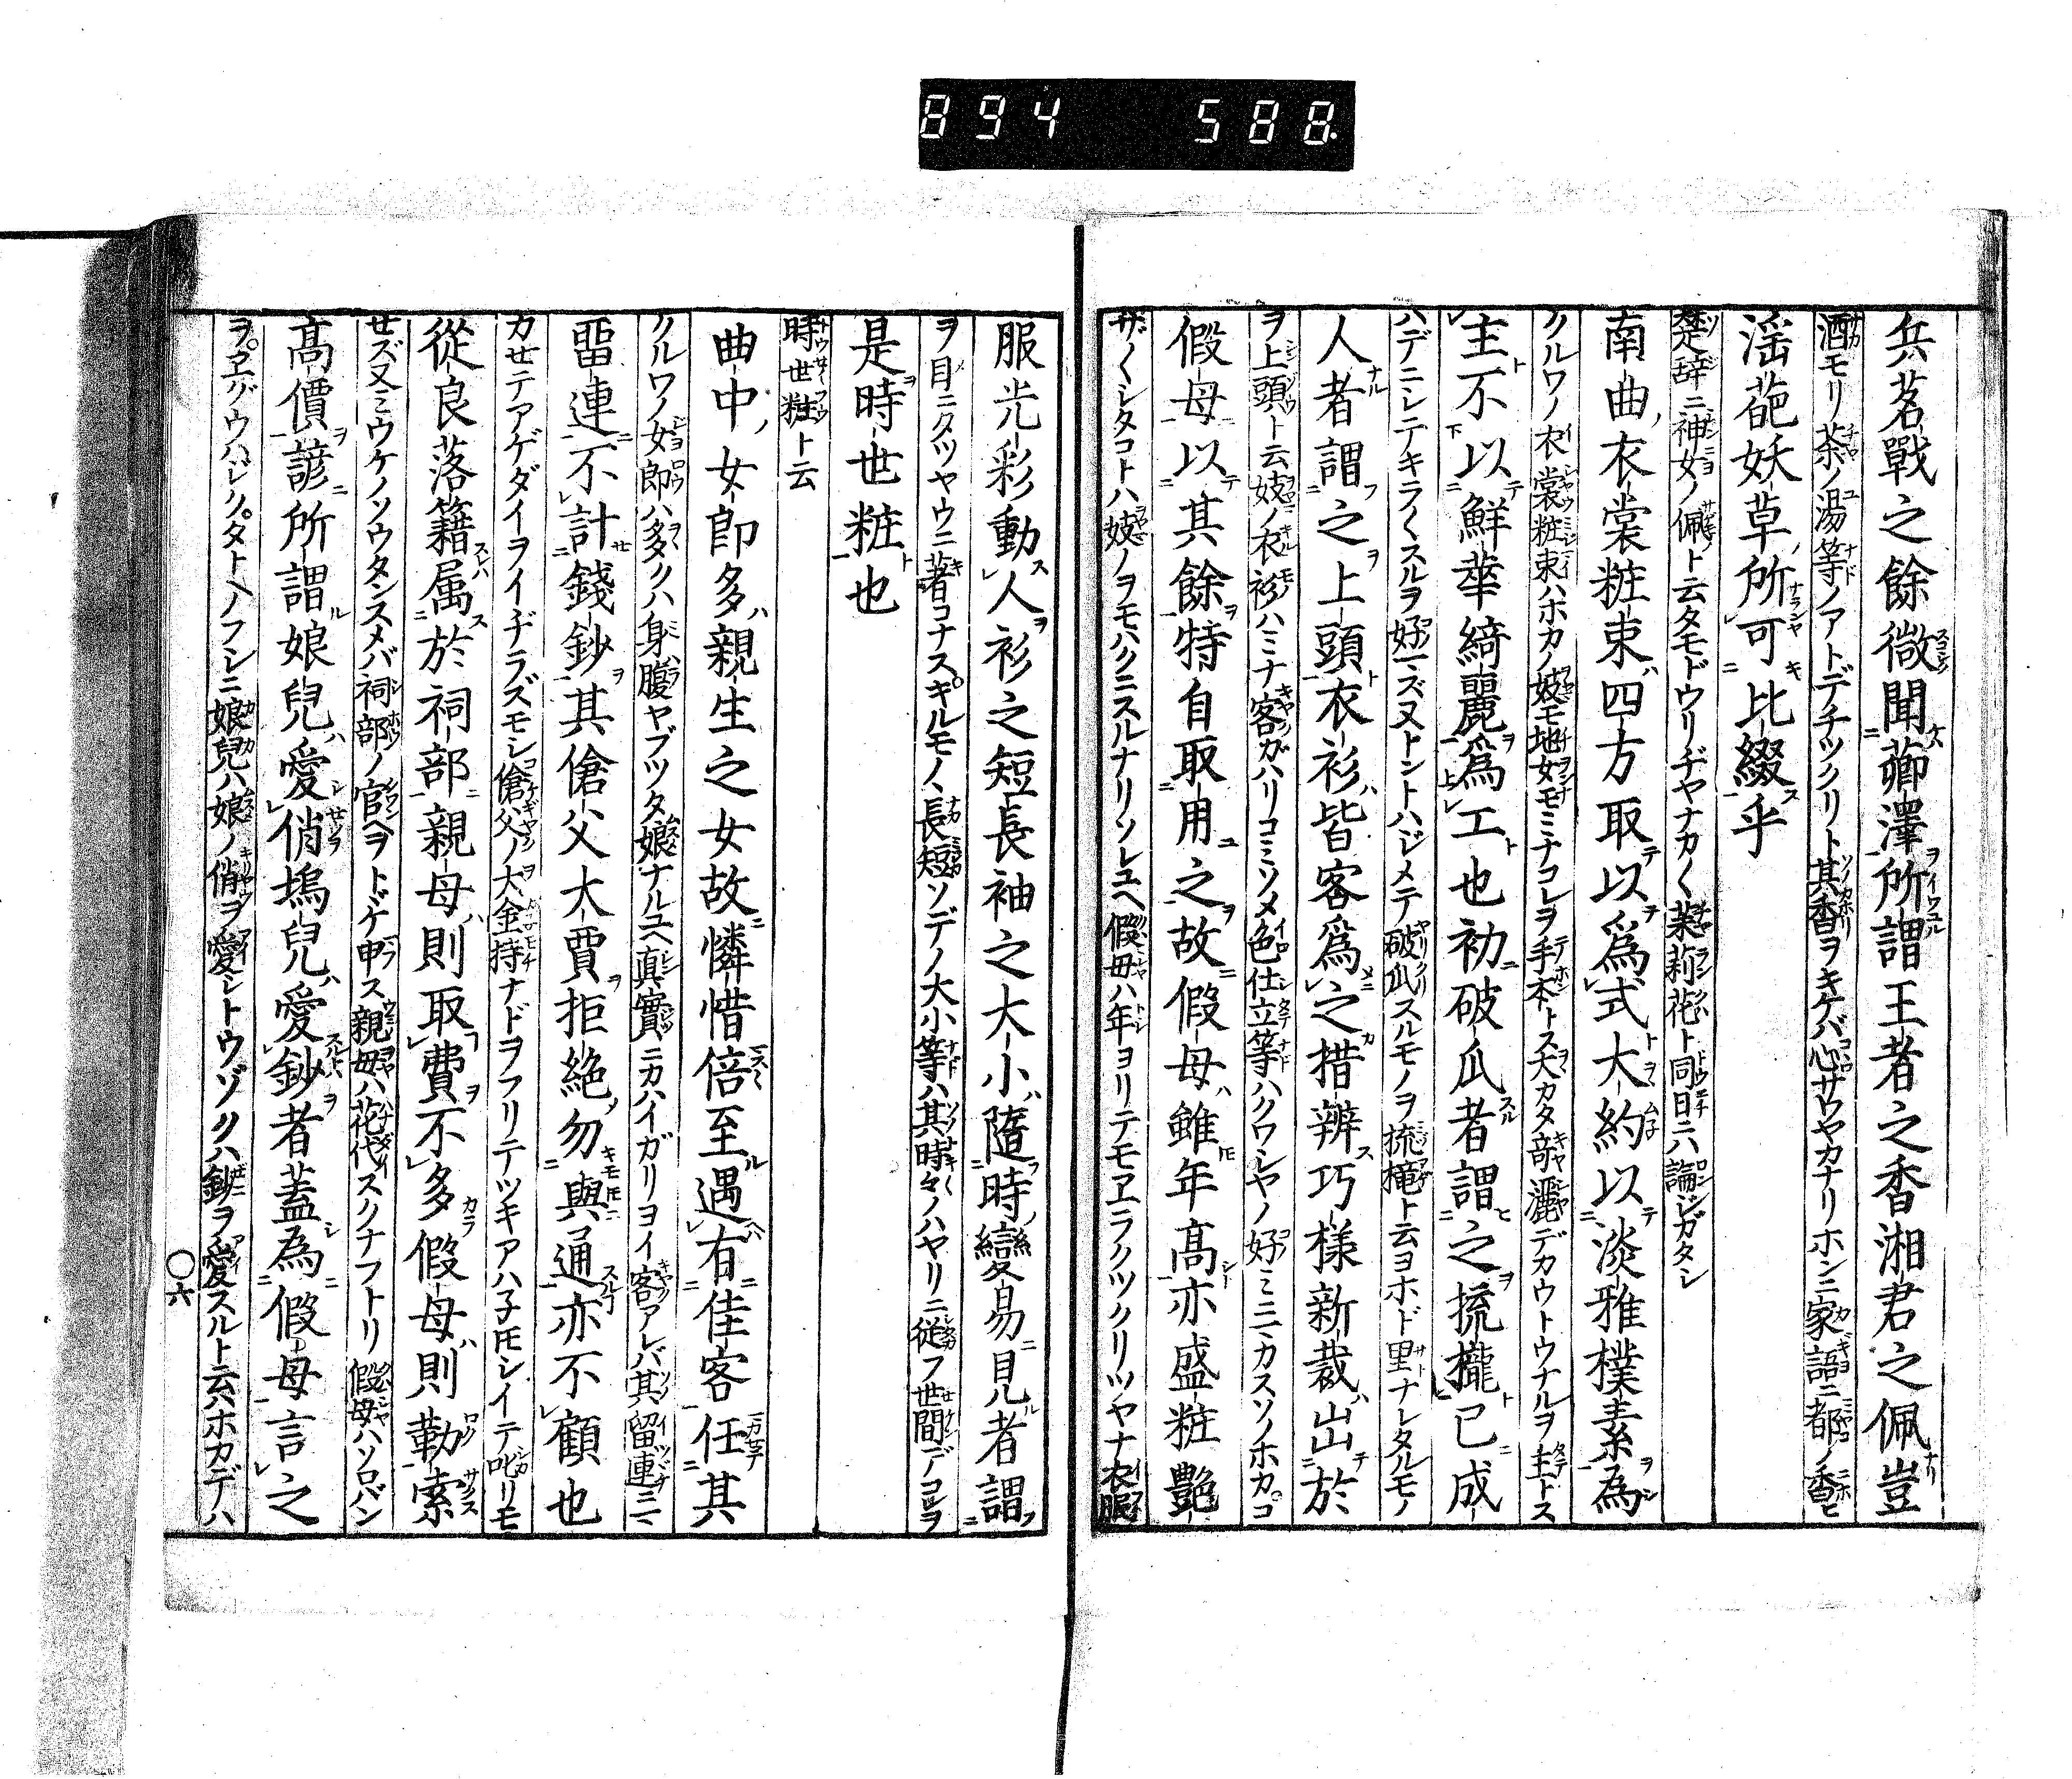 894 588.
兵茗戰之餘微聞薌澤所謂王者之香湘君之佩豈
酒モリ茶ノ湯等ノアトデチツクリト其香ヲキケバ心サワヤカナリホンニ家語ニ都ノ香ヒ
淫葩妖草所可比綴乎
楚辞ニ神女ノ佩ト云タモドウリヂヤナカ〱茉莉花ト同日ニ論ジガタシ
南曲衣裳粧束四方取以為式大約以淡雅樸素為
クルワノ衣裳粧束ハホカノ妓モ地女モミナコレヲ手本トス大カタ奇麗デカウトウナルヲ主トス
主不以鮮華綺麗爲工也初破瓜者謂之梳櫳已成
ハデニシテキラ〱スルヲ好マズ又トントハジメテ破瓜スルモノヲ梳櫳ト云ヨホド里ナレタルモノ
人者謂之上頭衣衫皆客爲之措辨巧様新裁出於
ヲ上頭ト云妓ノ衣衫ハミナ客ガハリコミソメ色仕立等ハクワシヤノ好ミニマカスソノホカコ
假母以其餘特自取用之故假母雖年高亦盛粧艷
ザ〱シタコトハ妓ノヲモハクニスルナリソレユヘ假母ハ年ヨリテモヱラクツクリツヤナ衣服
服光彩動人衫之短長袖之大小隨時變易見者謂
ヲ目ニタツヤウニ著コナスキルモノヽ長短ソデノ大小等ハ其時々ノハヤリニ従フ世間デコレヲ
是時世粧也
時世粧ト云
曲中女郎多親生之女故憐惜倍至遇有佳客任其
クルワノ女郎ハ多クハ身腹ヤブツタ娘ナルユヘ真實ニカハイガリヨイ客アレバ其留連ニマ
畱連不計錢鈔其傖父大賈拒絶勿與通亦不顧也
カセテアゲダイヲイヂラズモシ傖父ノ大金持ナドヲフリテツキアハ子𪜈シイテ叱リモ
從良落籍属於祠部親母則取費不多假母則勒索
せズ又ミウケノソウタンスメバ祠部ノ官ヘヲトドケ申ス親母ハ花代スクナフトリ假母ハソロバン
髙價諺所謂娘兒愛俏塢兒愛鈔者蓋為假母言之
ヲヱヅウハシクタトヘノフシニ娘兒ハ娘ノ俏ヲ愛シトウゾクハ鈔ヲ愛スルト云六ホカデハ
〇六